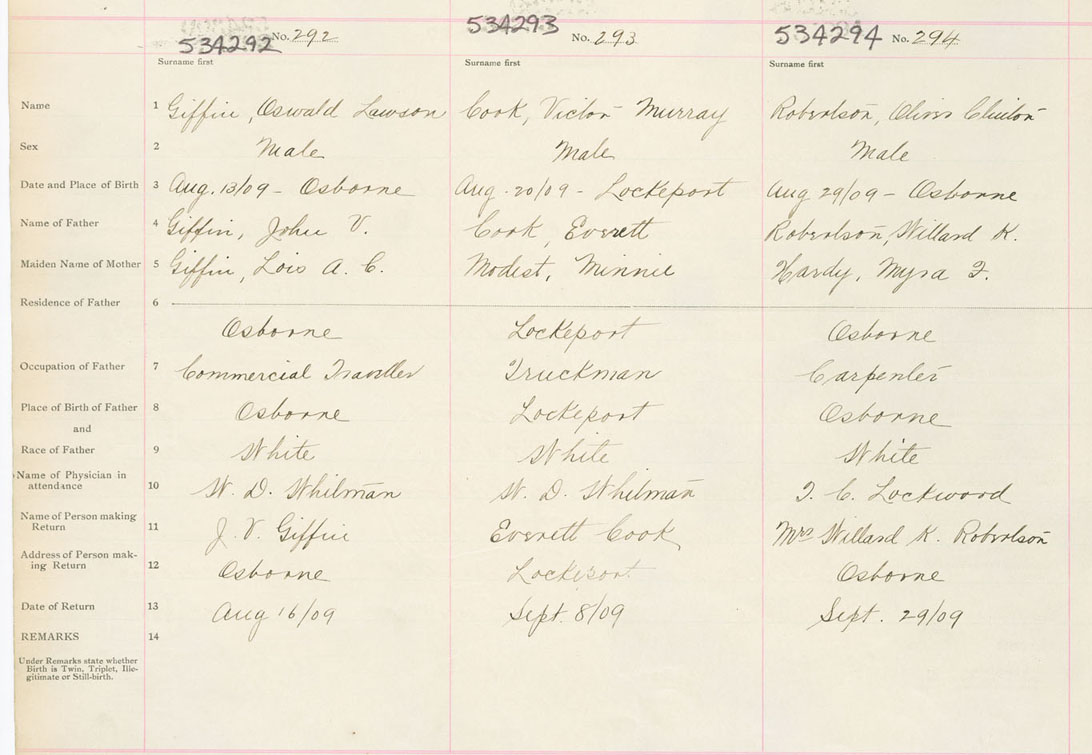 534292 No. 292 534293 No. 293 534294 No. 294
Surname first Surname first Surname first
Name 1 Giffin, Oswald Lawson Cook, Victor Murray Robertson, Oliver Clinton
Sex 2 Male Male Male
Date and Place of Birth 3 Aug. 13/09 - Osborne Aug. 20/09 - Lockeport Aug 29/09 - Osborne
Name of Father 4 Giffin, John V. Cook, Everett Robertson, Willard K.
Maiden Name of Mother 5 Giffin, Lois A. C. Modest, Minnie Hardy, Myra F.
Residence of Father 6
Osborne Lockeport Osborne
Occupation of Father 7 Commercial Traveller Truckman Carpenter
Place of Birth of Father 8 Osborne Lockeport Osborne
and
Race of Father 9 White White White
Name of Physician in
attendance 10 W. D. Whitman W. D. Whitman F. C. Lockwood
Name of Person making
Return 11 J. V. Giffin Everett Cook Mrs Willard K. Robertson
Address of Person mak-
ing Return 12 Osborne Lockeport Osborne
Date of Return 13 Aug 16/09 Sept. 8/09 Sept. 29/09
REMARKS 14
Under Remarks state whether
Birth is Twin, Triplet, Ille-
gitimate or Still-birth.